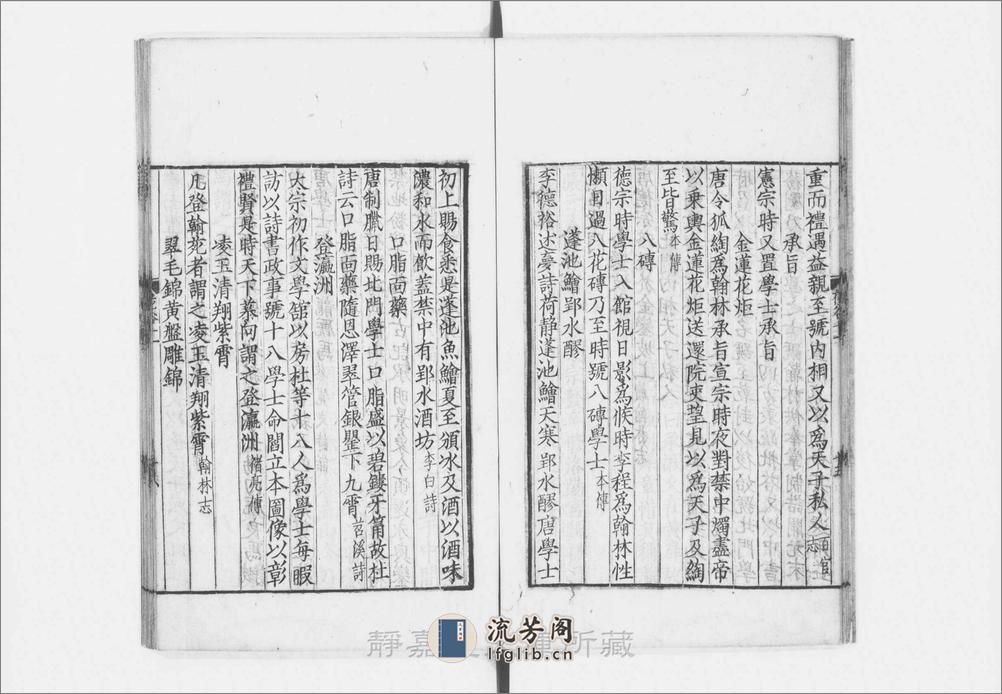 重而禮遇益親至號內相又以爲天子私人百官志
承旨
憲宗時又置學士承旨
金蓮花炬
唐令狐綯爲翰林承旨宣宗時夜對禁中燭盡帝
以乘輿金蓮花炬送還院吏望見以爲天子及綯
至皆驚本傳
八磚
德宗時學士入館視日影爲候時李程爲翰林性
懶日過八花磚乃至時號八磚學士本傳
蓬池鱠郢水醪
李德裕述夢詩荷静蓬池鱠天寒郢水醪唐學士
初上賜食悉是蓬池魚鱠夏至頒冰及酒以酒味
濃和水而飲蓋禁中有郢水酒坊李白詩
口脂面藥
唐制臘日賜北門學士口脂盛以碧鏤牙筩故杜
詩云口脂面藥隨恩澤翠管銀罌下九霄苕溪詩
登瀛洲
太宗初作文學館以房杜等十八人爲學士每暇
訪以詩書政事號十八學士命閻立本圖像以彰
禮賢是時天下慕向謂之登瀛洲褚亮傳
凌玉清翔紫霄
凡登翰苑者謂之凌玉清翔紫霄翰林志
翠毛錦黄盤雕錦
流芳阁
lfglib.cn
靜嘉 所藏